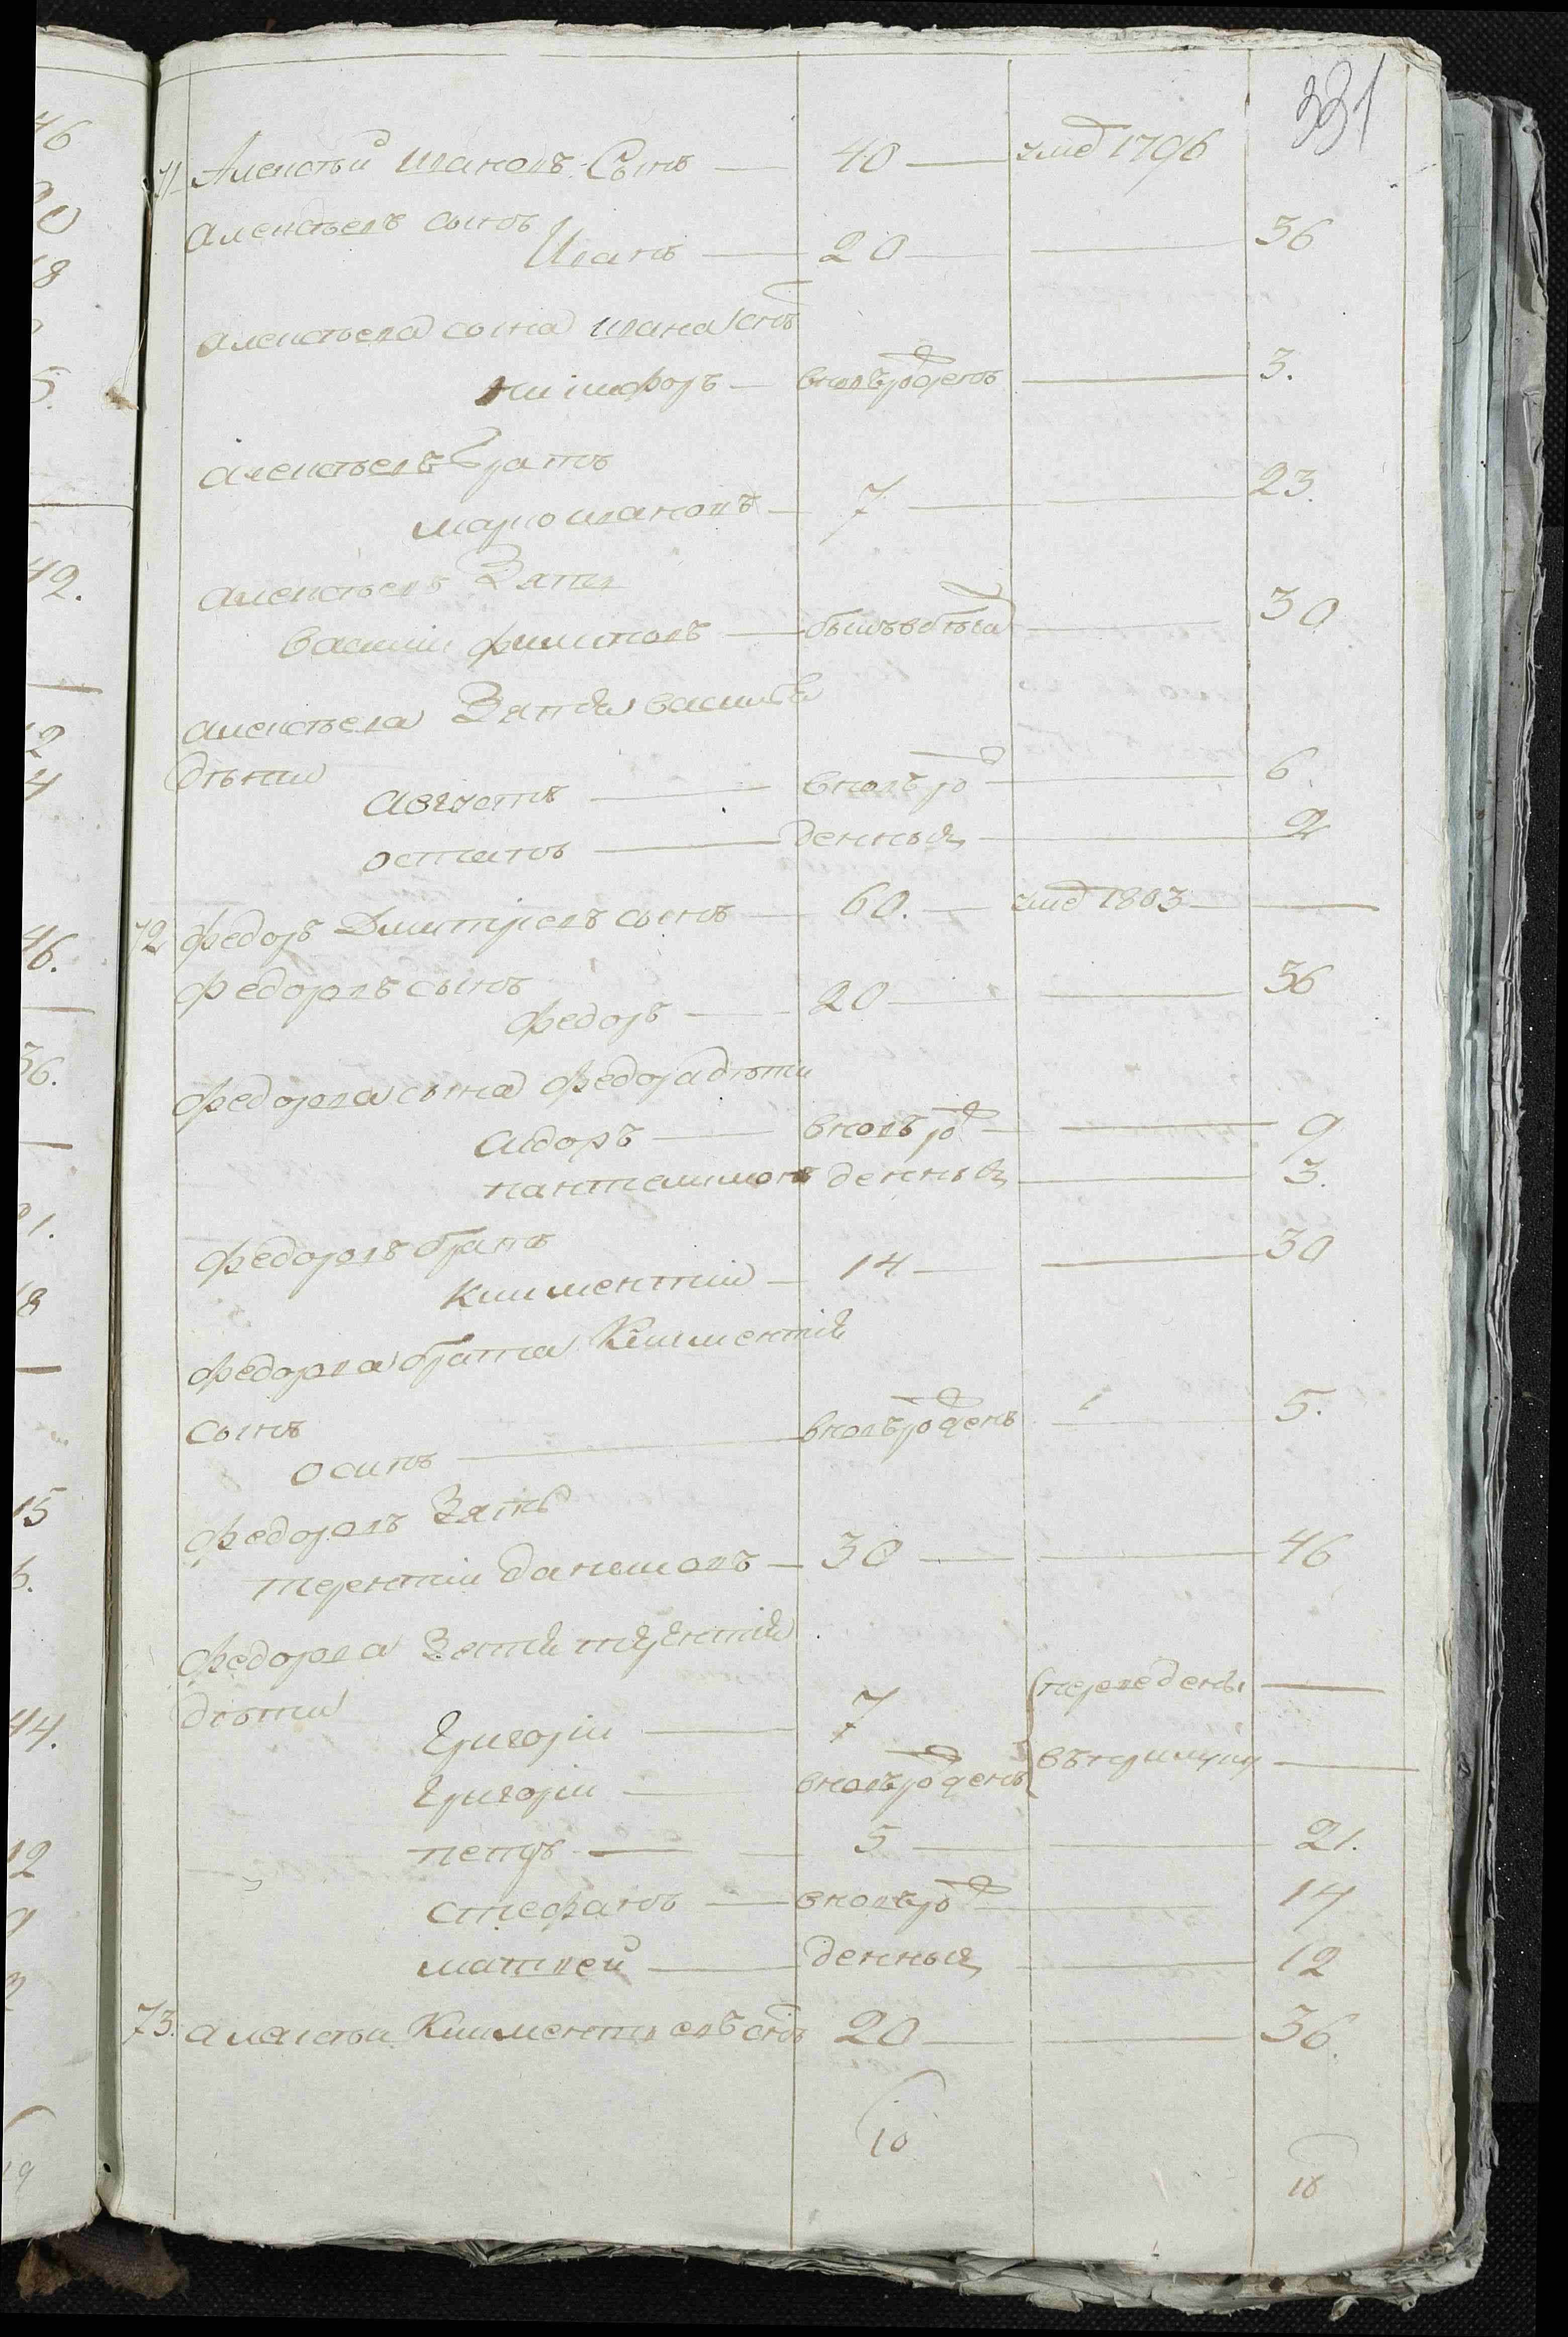 331
71 Алексѣй ивановъ Сынъ — 40 — умед 1796
алексѣевъ сынъ
Иванъ — 20 — 36
алексѣева сына ивана снъ
никифоръ — вновьрожденъ — 3.
алексѣевъ братъ
марко ивановъ — 7 — 23.
алексѣевъ Зять
василій филиповъ — — 30
алексѣева Зятя василья
дѣти
августъ — вновь ро — 6
остапъ — жденныя — 2
72 федоръ Дмитріевъ сынъ — 60. — умед 1803 —
федоровъ сынъ
федоръ — 20 — 36
федорова сына федора дѣти
сидоръ — вновь ро — 9
пантелимонъ жденныя — 3.
федоровъ братъ
Климентій — 14 — 30
федорова брата Климентія
сынъ
осипъ — вновьрожденъ — 5.
федоровъ Зять
терентій даниловъ — 30 — 46
федорова Зетя терентія
дѣти
григоріи — 7 переведены —
григоріи — вновьрожденъ
петръ — 5 — 21.
стефанъ — вновьро — 14
матвей — жденныя — 12
73. алексѣи Климентіевъ снъ 20 — 36.
10
18